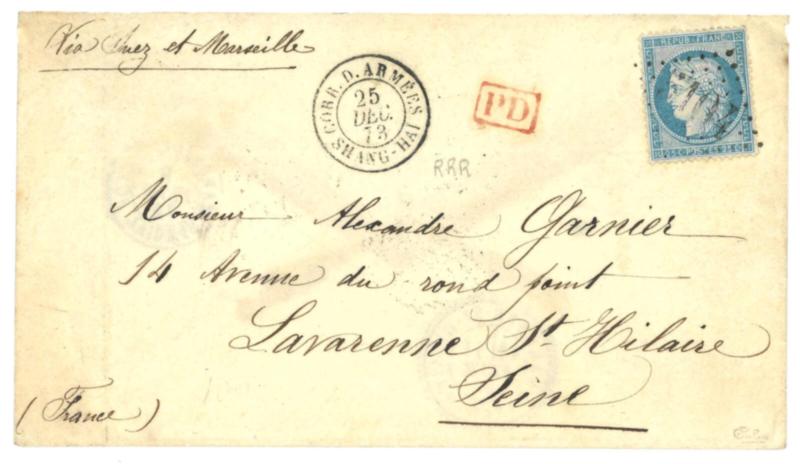 Via Suez et Marseille
CORR. D. ARMÉES
25
DÉC.
73
SHANG-HAI
PD
REPUB. FRANC.
25 C. POSTES 25 C.
RRR
Monsieur Alexandre Garnier
14 Avenue du rond point
Lavarenne St. Hilaire
Seine
(France)